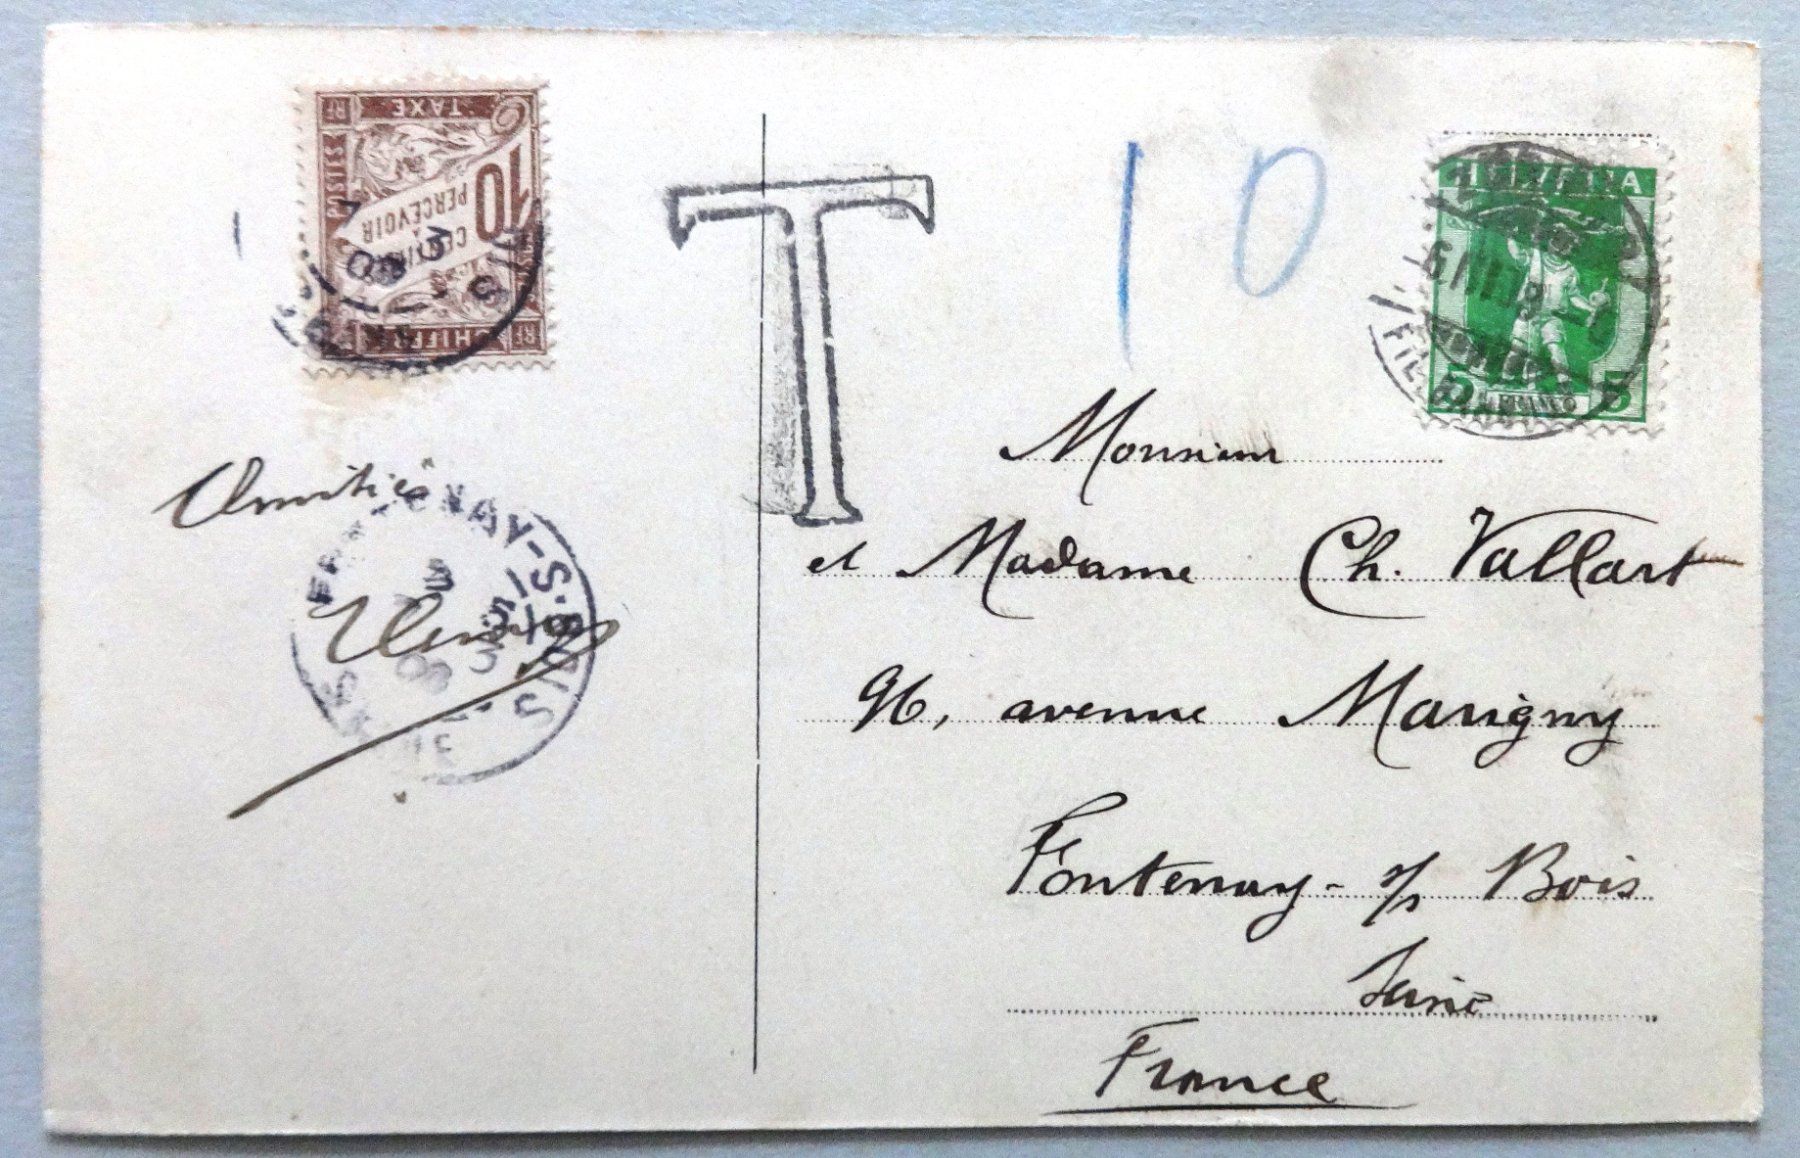 TAXE
RF
RF
POSTES
10
CENTIMES
À
PERCEVOIR
CHIFFRE
RF
T
10
HELVETIA
5
5
FRANCO
Amitiés
FONTENAY-S-BOIS
SEINE
Monsieur
et Madame Ch. Vallart
96, avenue Marigny
Fontenay - s/s Bois
Seine
France